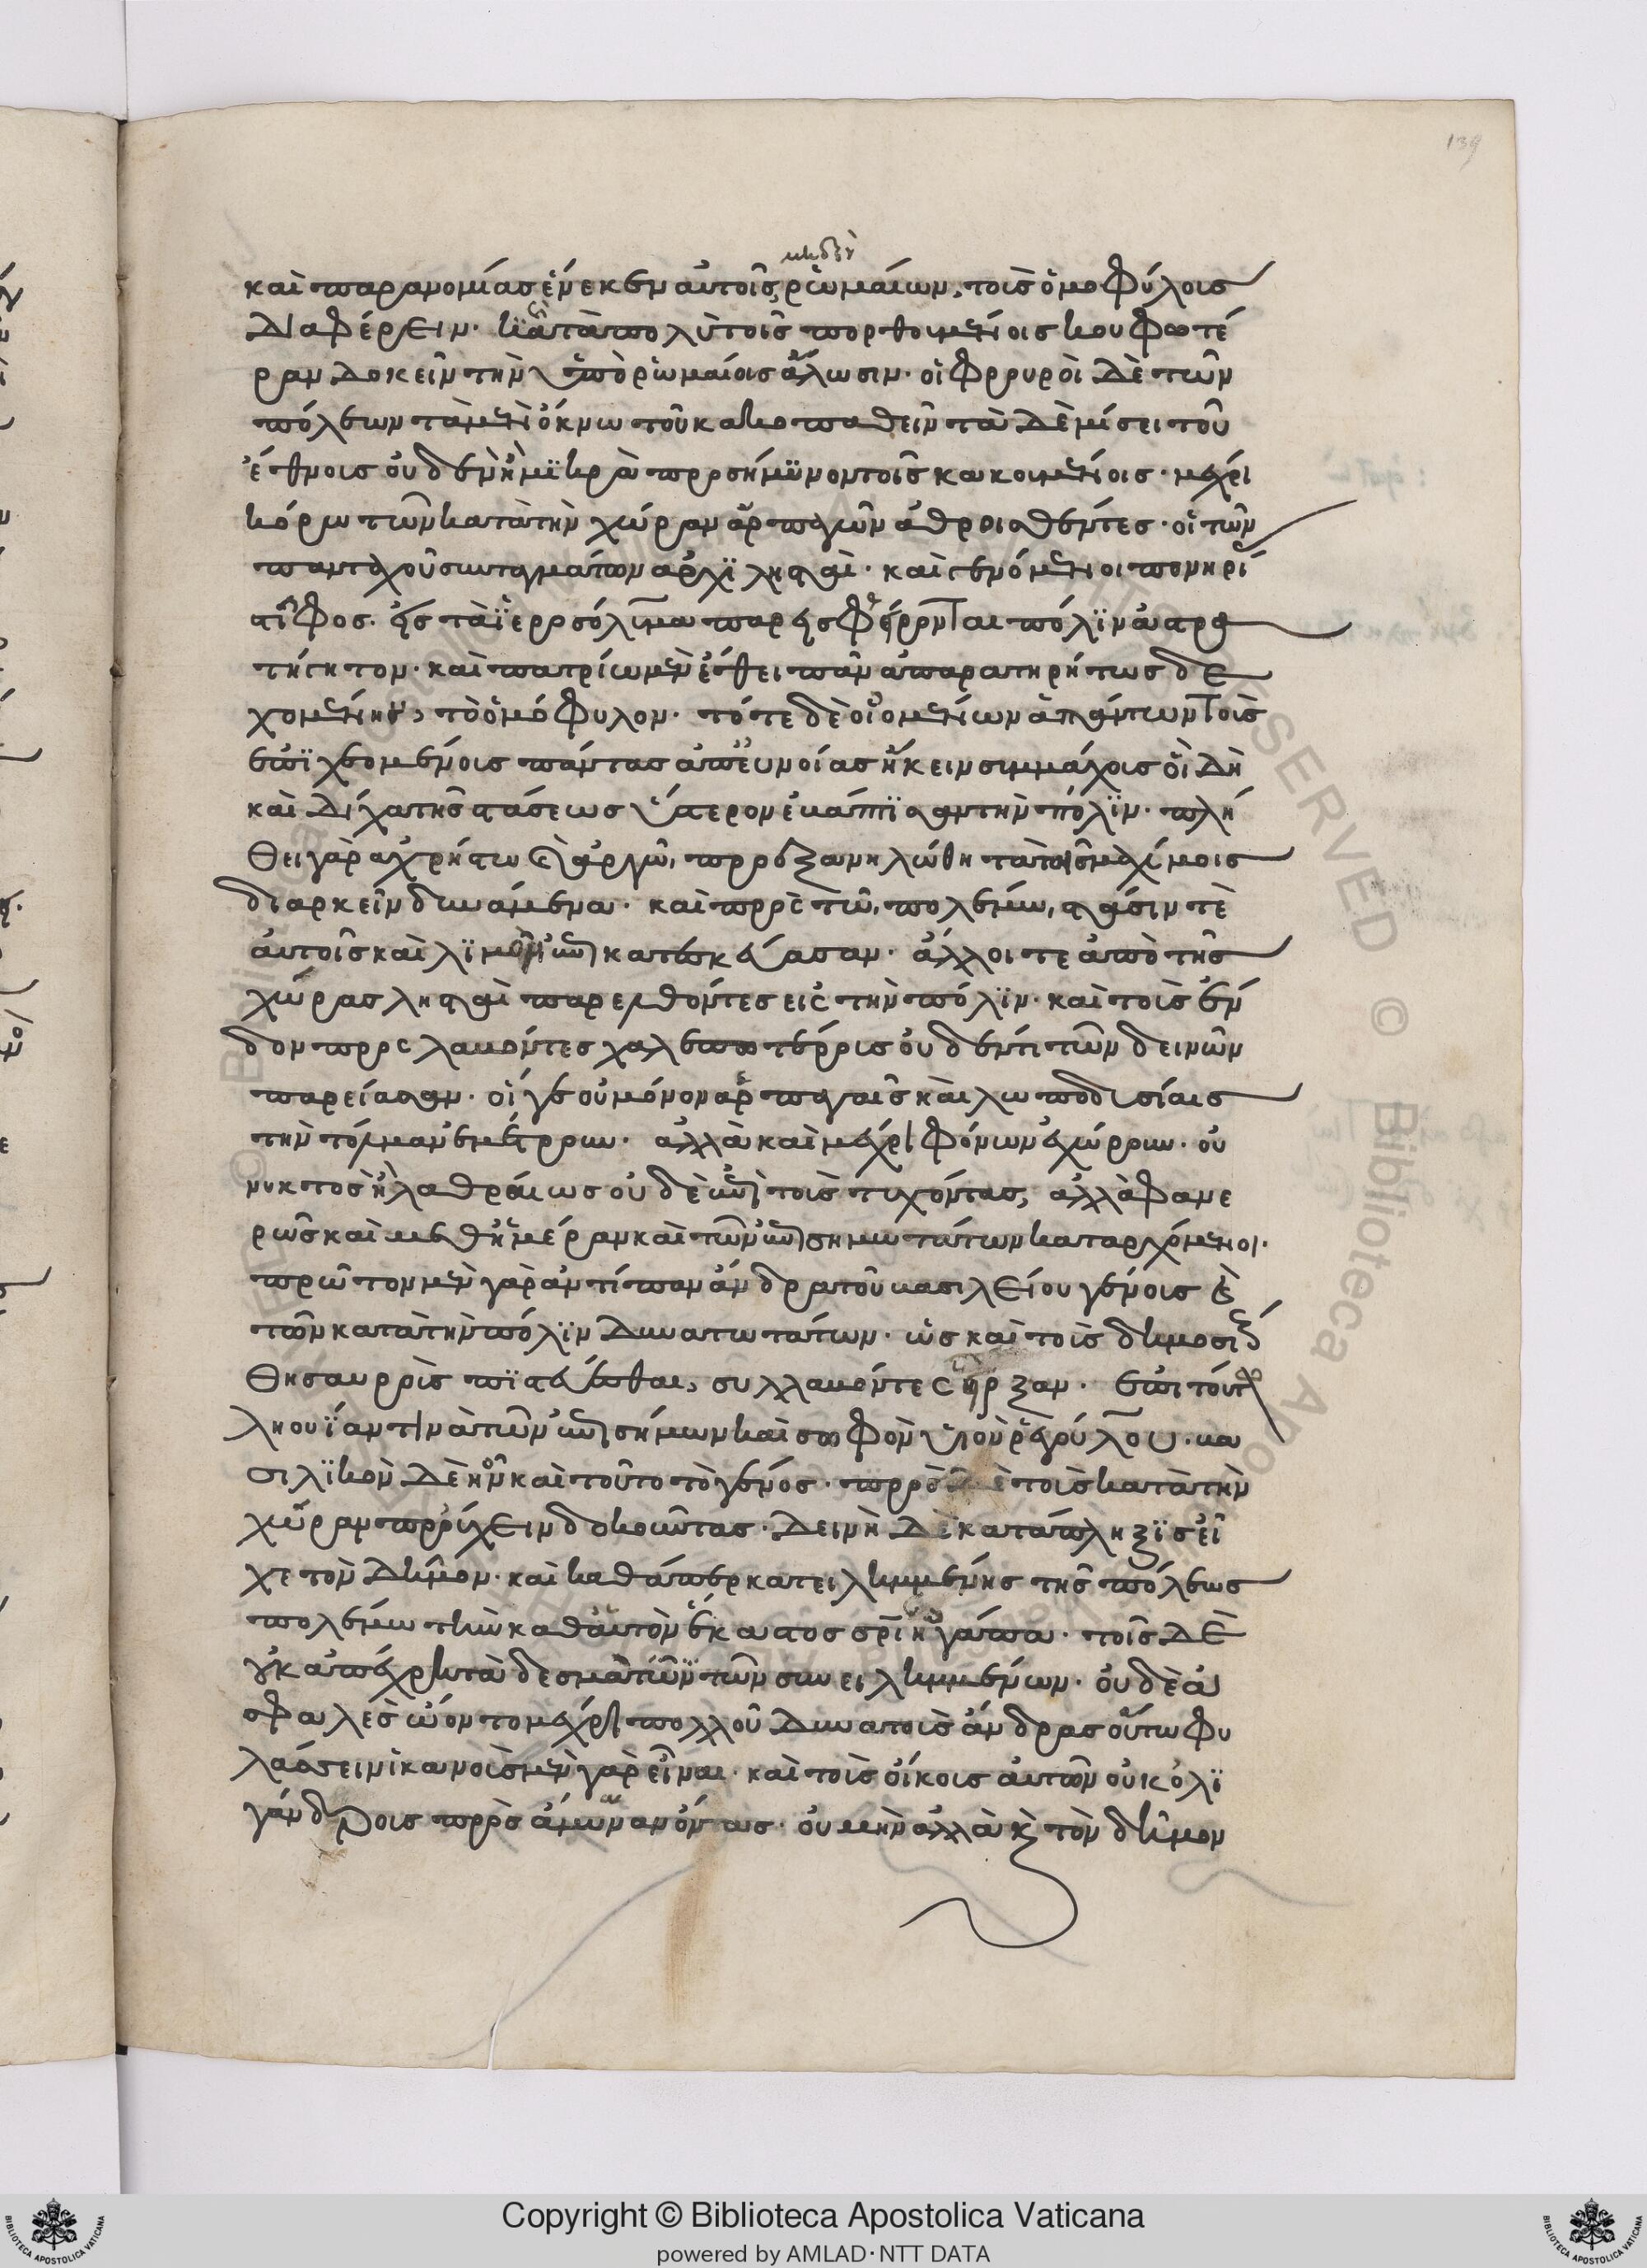 139
μηδὲν
καὶ παρανομίας ἕνεκεν αὐτοῖς ῥωμαίων, τοὺς ὁμοφύλους
διαφέρειν. κατὰ πολὺ τοῖς πορθουμένοις κουφοτέ
ραν δοκεῖν τὴν ὑπὸ ῥωμαίοις ἅλωσιν. οἱ φρουροὶ δὲ τῶν
πόλεων τὰ μὲν ὄκνω τοῦ κακοπαθεῖν τὰ δὲ μίσει τοῦ
ἔθνους οὐδὲν ἢ μικρὰ προσήμυνον τοῖς κακουμένοις. μέχρι
κόρω τῶν κατὰ τὴν χώραν ἁρπαγῶν ἀθροισθέντες. οἱ τῶν
πανταχοῦ συνταγμάτων ἀρχιλησταὶ. καὶ γενόμενοι πονηρί
στῖφος. εἰς τὰ ἱεροσόλυμα παρεισφέρονται πόλιν ἀστρα
τήγητον. καὶ πατρίω μὲν ἔθει πᾶν ἀπαρατηρήτως δε
χομένην τὸ ὁμόφυλον. τότε δὲ οἰομένων ἁπάντων τοὺς
ἐπιχεομένους πάντας ἀπ' εὐνοίας ἥκειν συμμάχους ὃ δὴ
καὶ δίχα τῆς στάσεως ὕστερον ἐβάπτισαν τὴν πόλιν. πλή
θει γὰρ ἀχρήστω καὶ ἀργῶ, προεξανηλώθη τὰ τοῖς μαχίμοις
διαρκεῖν δυνάμενα. καὶ πρὸς τῶ πολέμω, στάσιν τὲ
αὐτοῖς καὶ λιμὸν ἐπικατεσκεύασαν. ἄλλοι τε ἀπὸ τῆς
χώρας λησταὶ παρελθόντες εἰς τὴν πόλιν. καὶ τοὺς ἔν
δον προσλαβόντες χαλεπωτέρους οὐδὲν ἔτι τῶν δεινῶν
παρείεσαν. οἵ γε οὐ μόνον ἁρπαγαῖς καὶ λωποδυσίαις
τὴν τόλμαν ἐμέτρουν. ἀλλὰ καὶ μέχρι φόνων ἐχώρουν. οὐ
νυκτὸς ἢ λαθραίως οὐδὲ ἐπὶ τοὺς τυχόντας, ἀλλὰ φανε
ρῶς καὶ μεθ' ἡμέραν καὶ τῶν ἐπισημωτάτων καταρχόμενοι.
πρῶτον μὲν γὰρ ἀντίπαν ἄνδρα τοῦ βασιλείου γένους καὶ
τῶν κατὰ τὴν πόλιν δυνατωτάτων. ὡς καὶ τοὺς δημοσίους
θησαυροὺς πιστεύεσθαι, συλλαβόντες εἷρξαν. ἐπὶ τούτω
ληουίαν τινὰ τῶν ἐπισήμων καὶ σωφὸν υἱὸν ῥαγούλου. βα
σιλικὸν δὲ ἦν καὶ τοῦτο τὸ γένος. πρὸς δὲ τοὺς κατὰ τὴν
χώραν προύχειν δοκοῦντας. δεινὴ δὲ κατάπληξις εἶ
χε τὸν δῆμον. καὶ καθάπερ κατειλημμένης τῆς πόλεως
πολέμω τὴν καθ' αὑτὸν ἕκαστος σωτηρίαν ἠγάπα. τοῖς δὲ
οὐκ ἀπέχρη τὰ δεσμὰ τῶν συνειλημμένων. οὐδὲ ἀ
σφαλὲς ᾤοντο μέχρι πολλοῦ δυνατοὺς ἄνδρας οὕτω φυ
λάσσειν ἱκανοὺς μὲν γὰρ εἶναι. καὶ τοὺς οἴκους αὐτῶν οὐκ ὀλι
γάνδρους πρὸς ἄμυναν ὄντας. οὐ μὴν ἀλλὰ καὶ τὸν δῆμον
Copyright © Biblioteca Apostolica Vaticana
powered by AMLAD·NTT DATA